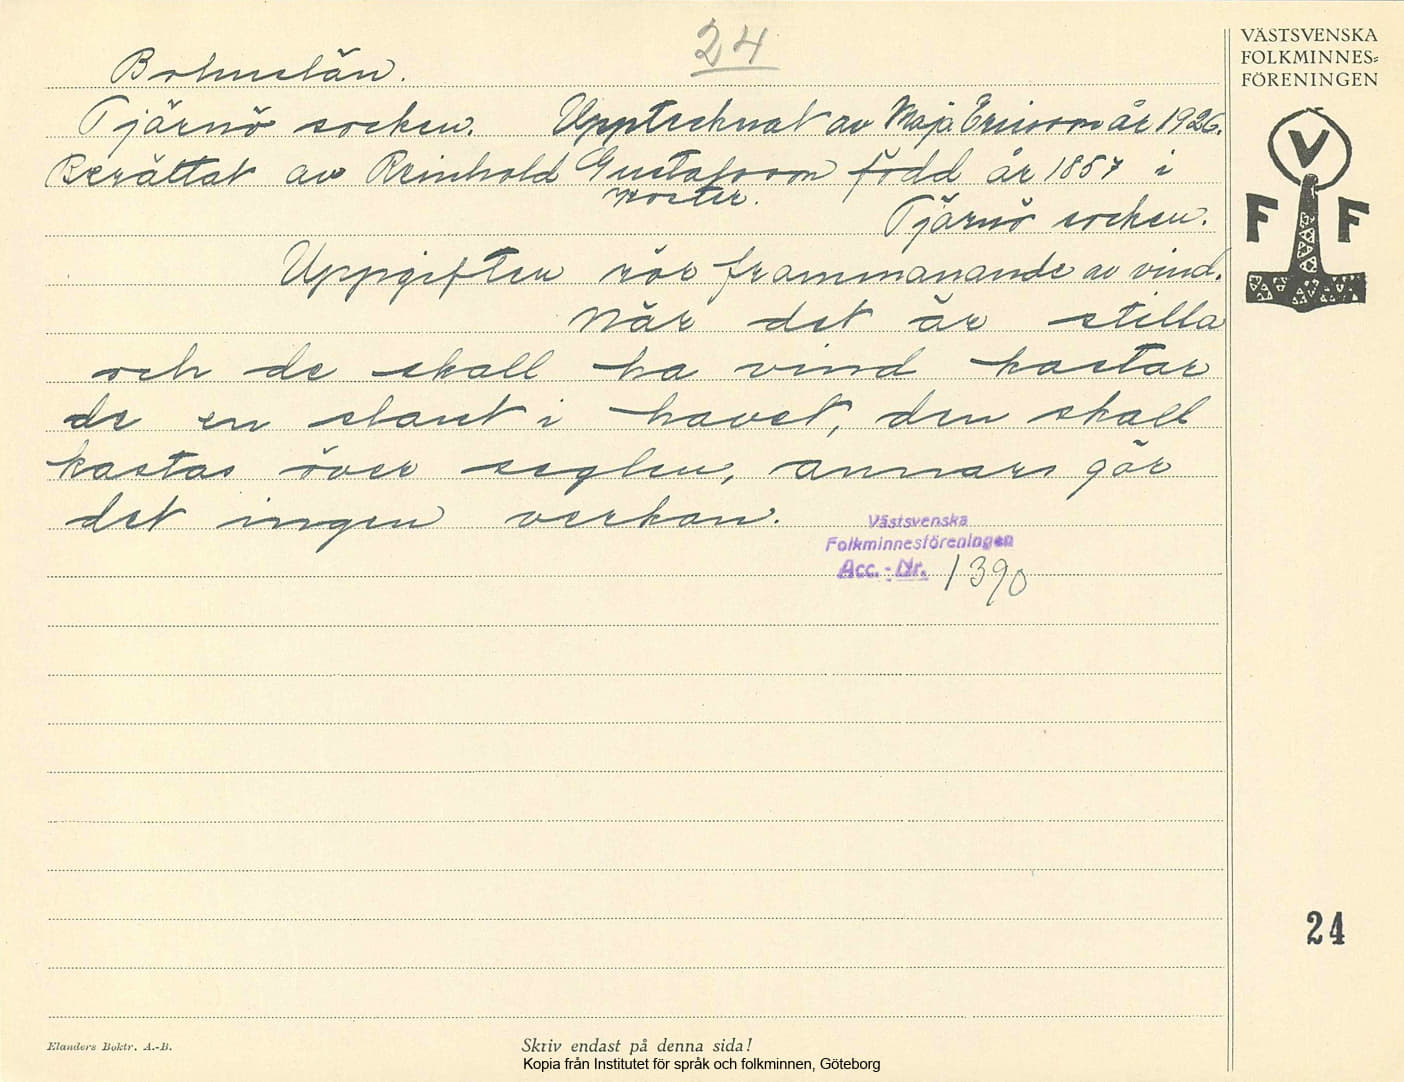 24
VÄSTSVENSKA
FOLKMINNES=
FÖRENINGEN
V
F F
Bohuslän.
Tjärnö socken. Upptecknat av Maja Ericson år 1926.
Berättat av Reinhold Gustafsson född år 1857 i
Tjärnö socken.
Uppgiften rör frammanande av vind.
När det är stilla
och de skall ha vind kastar
de en slant i havet, den skall
kastas över seglen, annars gör
det ingen verkan.
Västsvenska
Folkminnesföreningen
Acc. - Nr. 1390
24
Elanders Boktr. A.-B.
Skriv endast på denna sida!
Kopia från Institutet för språk och folkminnen, Göteborg